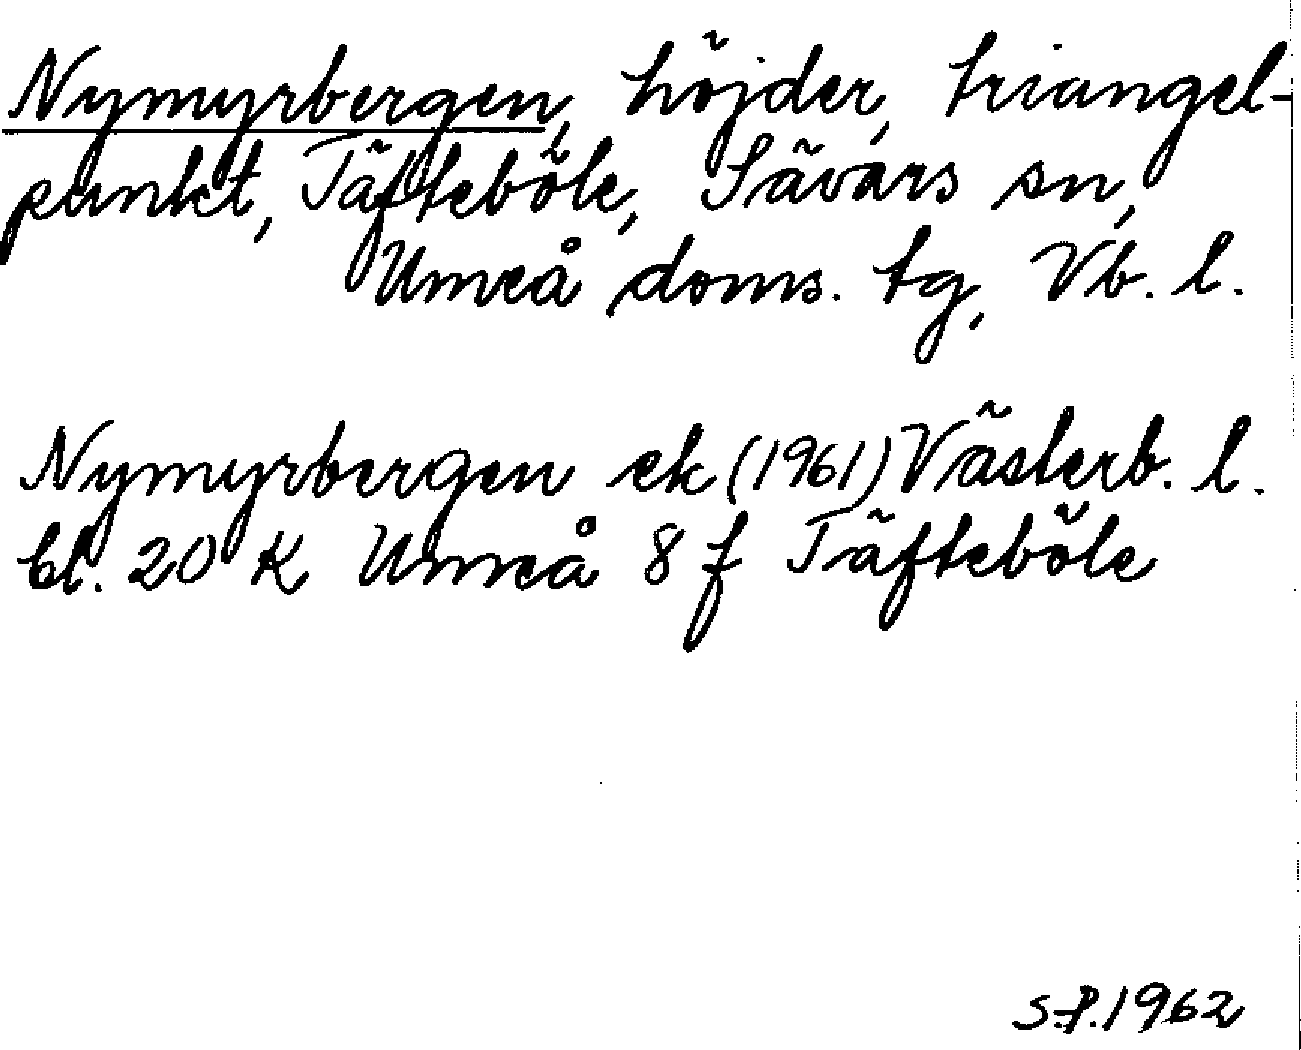 Nymyrbergen, höjder, triangel-
punkt, Täfteböle, Sävars sn,
Umeå doms. tg, Vb. l.
Nymyrbergen ek (1961) Västerb. l.
bl. 20 K Umeå 8 f Täfteböle
S.P. 1962